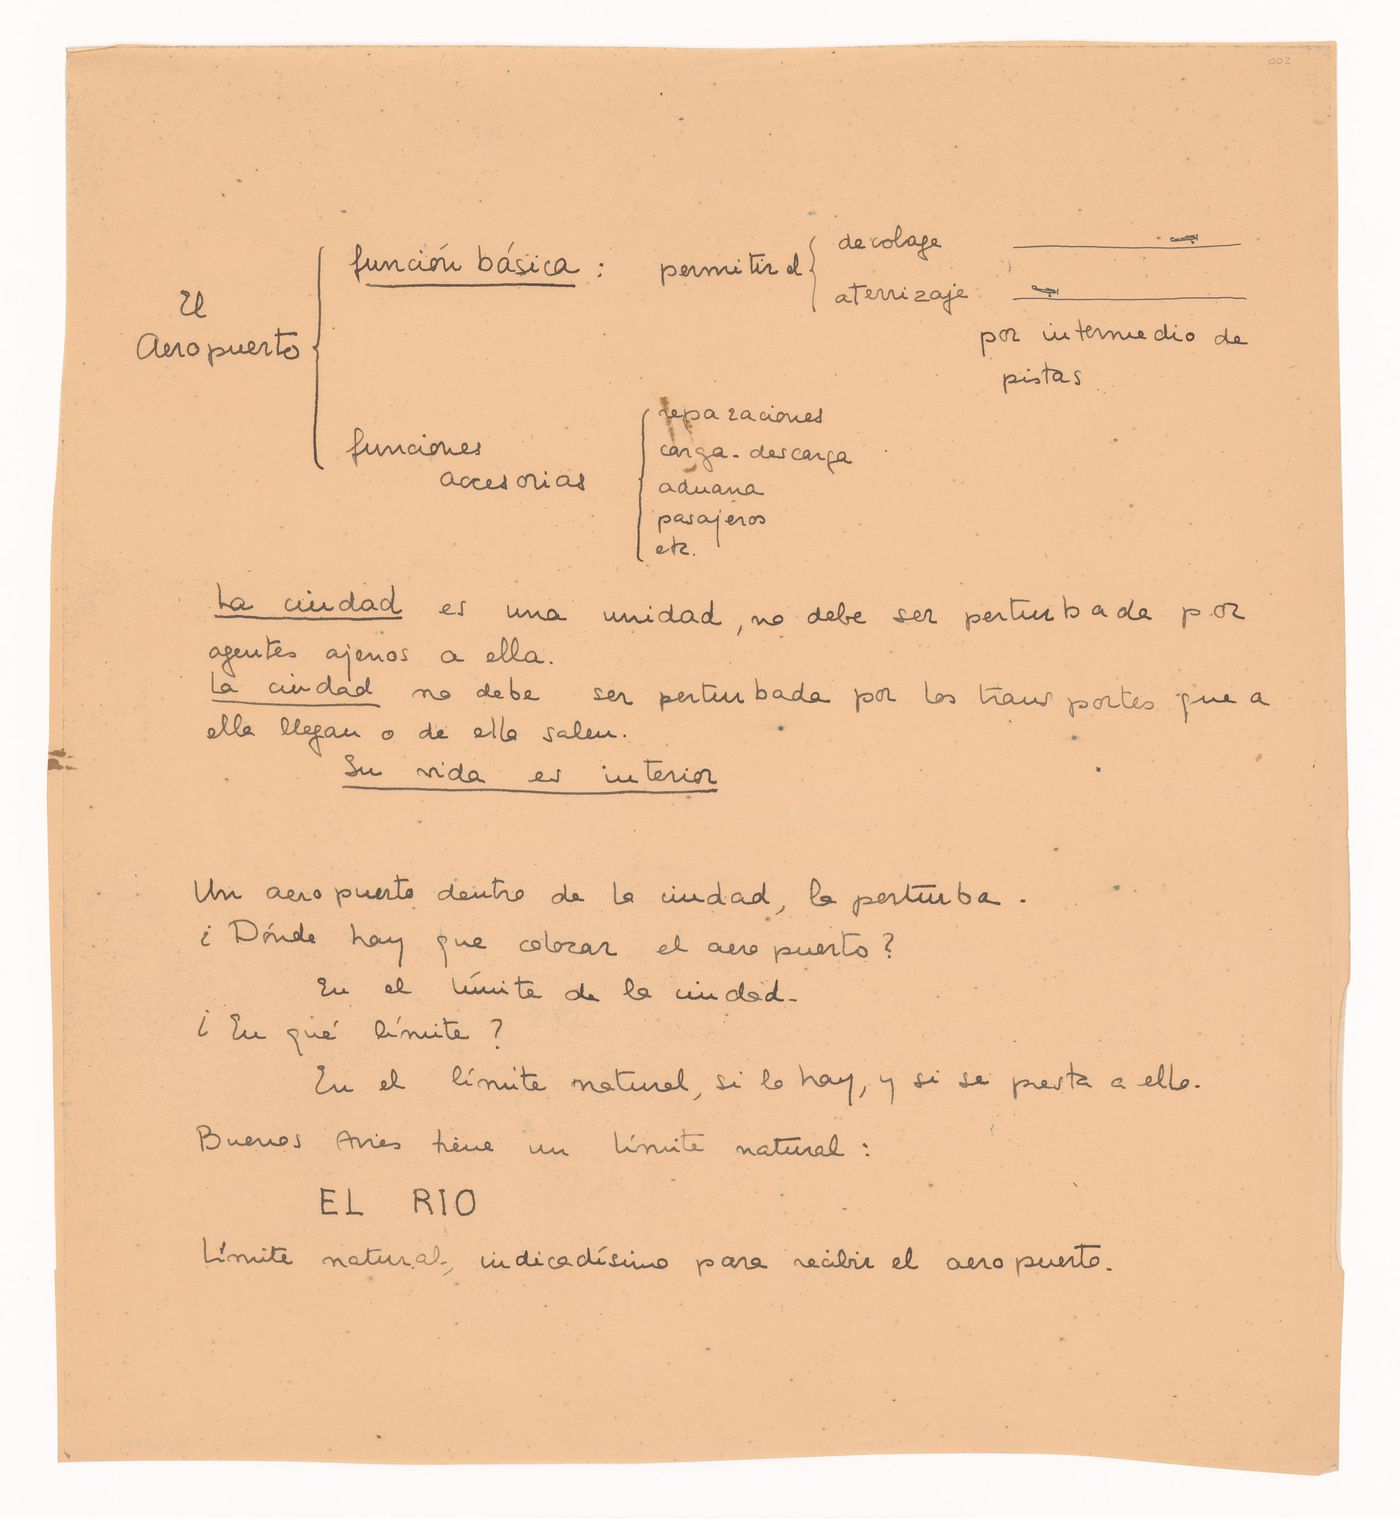 002
función básica : permitir el { decolage
aterrizaje
por intermedio de
pistas
El
Aeropuerto {
funciones
accesorias
{ reparaciones
carga - descarga
aduana
pasajeros
etc.
La ciudad es una unidad, no debe ser perturbada por
agentes ajenos a ella.
La ciudad no debe ser perturbada por los transportes que a
ella llegan o de ella salen.
Su vida es interior
Un aeropuerto dentro de la ciudad, la perturba.
¿Dónde hay que colocar el aeropuerto?
En el límite de la ciudad.
¿En qué límite?
En el límite natural, si lo hay, y si se presta a ello.
Buenos Aires tiene un límite natural:
EL RIO
Límite natural, indicadísimo para recibir el aeropuerto.